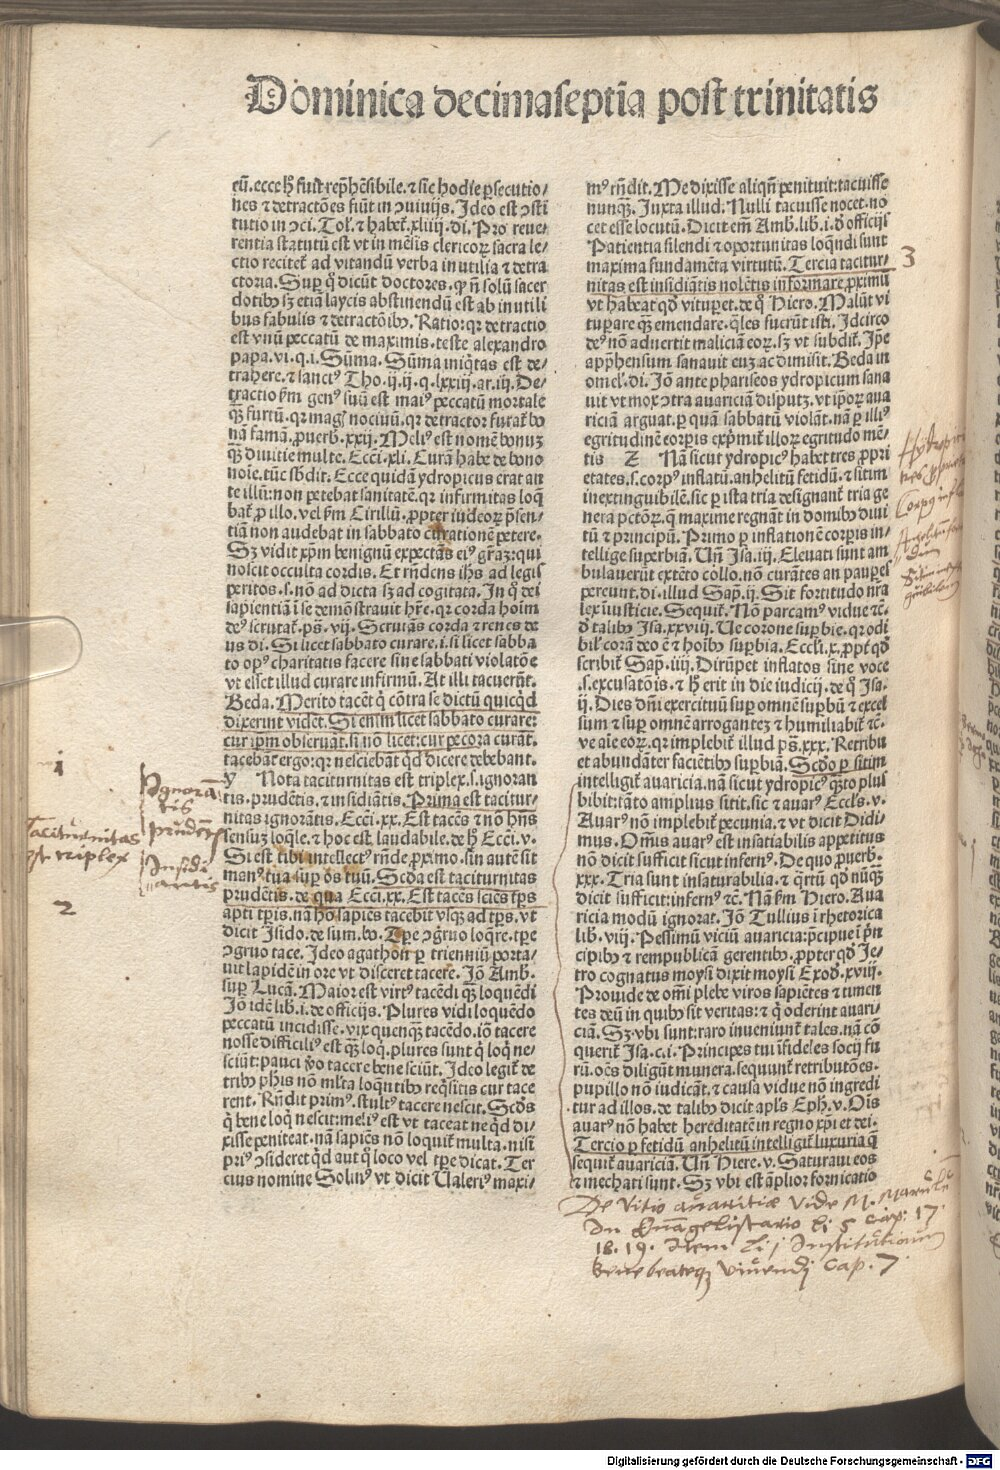 Dominica decimaseptīa post trinitatis
eū. ecce hͦ fuit rep̄hēsibile. ⁊ sic hodie ꝑsecutio⸗
nes ⁊ detractōes fiūt in ꝯuiuijs. Ideo est ꝯsti
tutio in ꝯci. Tol. ⁊ habet̄. xliiij. di. Pro reue⸗
rentia statutū est vt in mēsis clericoꝝ sacra le⸗
ctio recitet̄ ad vitandū verba inutilia ⁊ detra
ctoria. Suꝑ qͦ dicūt doctores. ꝙ nō solū sacer
dotibꝰ sꝫ etiā laycis abstinendū est ab inutili
bus fabulis ⁊ detractōibꝰ. Ratio: qꝛ detractio
est vnū peccatū de maximis. teste alexandro
papa. vi. q. i. Sūma. Sūma iniqͥtas est de⸗
trahere. ⁊ sanctꝰ Tho. ij. ij. q. lxxiij. ar. iij. De⸗
tractio ẜm genꝰ suū est maiꝰ peccatū mortale
qͣꝫ furtū. qꝛ magͥ nociuū. qꝛ detractor furat̄ bo
nā famā. ꝓuerb. xxij. Meliꝰ est nomē bonuꝫ
qͣꝫ diuitie multe. Ecci. xli. Curā habe de bono
noīe. tūc sb̄dit. Ecce quidā ydropicus erat an
te illū: non petebat sanitatē. qꝛ infirmitas loqͣ
bat̄ ꝓ illo. vel ẜm Cirillū. ꝓpter iudeoꝝ p̄sen⸗
tiā non audebat in sabbato curationē petere.
Sꝫ vidit xp̄m benignū expectās eiꝰ gr̄aꝫ: qui
noscit occulta cordis. Et rn̄dens ih̄s ad legis
peritos. s. nō ad dicta sꝫ ad cogitata. In qͦ dei
sapientiā ī se demōstrauit hr̄e. qꝛ corda hoīm
deꝰ scrutat̄. ps̄. vij. Scrutās corda ⁊ renes de
us di. Si licet sabbato curare. i. si licet sabba
to opꝰ charitatis facere sine sabbati violatōe
vt esset illud curare infirmū. At illi tacuerūt.
Beda. Merito tacēt qͥ cōtra se dictū quicqͥd
dixerint vidēt. Si enim licet sabbato curare:
cur ip̄m obseruāt. si nō licet: cur pecora curāt.
tacebāt ergo: qꝛ nesciebāt qͥd dicere debebant.
y Nota taciturnitas est triplex. s. ignoran
tis. prudētis. ⁊ insidiātis. Prima est tacitur⸗
nitas ignorātis. Ecci. xx. Est tacēs ⁊ nō hn̄s
sensuꝫ loqͤle. ⁊ hoc est laudabile. de hͦ Ecci. v.
Si est tibi intellectꝰ rn̄de ꝓximo. sin autē sit
manꝰ tua suꝑ os tuū. Scd̄a est taciturnitas
prudētis. de qua Ecci. xx. Est tacēs sciēs tp̄s
apti tp̄is. nā hō sapiēs tacebit vsqꝫ ad tp̄s. vt
dicit Isido. de sum. bo. Tp̄e ꝯgruo loqͤre. tp̄e
ꝯgruo tace. Ideo agathon ꝑ trienniū porta⸗
uit lapidē in ore vt disceret tacere. Iō Amb.
suꝑ Lucā. Maior est virtꝰ tacēdi qͣꝫ loquēdi
Iō idē lib. i. de officijs. Plures vidi loquēdo
peccatū incidisse. vix quenqͣꝫ tacēdo. iō tacere
nosse difficiliꝰ est qͣꝫ loqͥ. plures sunt qͥ loqͥ ne⸗
sciūt: pauci ꝟo tacere bene sciūt. Ideo legit̄ de
tribꝰ ph̄is nō ml̄ta loqͣntibꝰ reqͥsitis cur tace
rent. Rn̄dit primꝰ. stultꝰ tacere nescit. Scd̄s
qͥ bene loqͥ nescit: meliꝰ est vt taceat ne qͥd di⸗
xisse peniteat. nā sapiēs nō loquit̄ multa. nisi
priꝰ ꝯsideret qͥd aut qͦ loco vel tp̄e dicat. Ter
cius nomine Solinꝰ vt dicit Valeriꝰ maxi⸗
mꝰ rn̄dit. Me dixisse aliqn̄ penituit: tacuisse
nunqͣꝫ. Iuxta illud. Nulli tacuisse nocet. no
cet esse locutū. Dicit em̄ Amb. lib. i. dͤ officijs
Patientia silendi ⁊ oportunitas loqͣndi sunt
maxima fundamēta virtutū. Tercia tacitur⸗
nitas est insidiātis nolētis informare ꝓximū
vt habeat qd̄ vituꝑet. de qͦ Hiero. Malūt vi
tuꝑare qͣꝫ emendare. qͣles fuerūt isti. Idcirco
deꝰ nō aduertit maliciā eoꝝ. sꝫ vt subdit. Ip̄e
app̄hensum sanauit euꝫ ac dimisit. Beda in
omel̄. di. Iō ante phariseos ydropicum sana
uit vt mox ꝯtra auariciā disputꝫ. vt ip̄oꝝ aua
riciā arguat. ꝑ quā sabbatū violāt. nā ꝑ illiꝰ
egritudinē corꝑis exp̄mit̄ illoꝝ egritudo mē⸗
tis Z Nā sicut ydropicꝰ habet tres ꝓpri
etates. s. corpꝰ inflatū. anhelitū fetidū. ⁊ sitim
inextinguibilē. sic ꝑ ista tria designant̄ tria ge
nera pctōꝝ. q̄ maxime regnāt in domibꝰ diui
tū ⁊ principū. Primo ꝑ inflationē corꝑis in⸗
tellige superbiā. Vn̄ Isa. iij. Eleuati sunt am
bulauerūt extēto collo. nō curātes an pauꝑes
pereunt. di. illud Sap̄. ij. Sit fortitudo nr̄a
lex iusticie. Sequit̄. Nō parcamꝰ vidue ⁊c̄.
dͤ talibꝰ Isa. xxviij. Ue corone suꝑbie. qꝛ odi
bil̄ corā deo ē ⁊ hoībꝰ suꝑbia. Eccl̄i. x. ꝓpt̄ qd̄
scribit̄ Sap̄. iiij. Dirūpet inflatos sine voce
.s. excusatōis. ⁊ hͦ erit in die iudicij. de qͦ Isa.
ij. Dies dn̄i exercituū suꝑ omnē suꝑbū ⁊ excel
sum ⁊ suꝑ omnē arrogantez ⁊ humiliabit̄ ⁊c̄.
ve aīe eoꝝ. qꝛ implebit̄ illud ps̄. xxx. Retribu
et abundāter faciētibꝰ suꝑbiā. Scd̄o ꝑ sitim
intelligit̄ auaricia. nā sicut ydropicꝰ qͣto plus
bibit: tāto amplius sitit. sic ⁊ auarꝰ Eccl̄s. v.
Auarꝰ nō implebit̄ pecunia. ⁊ vt dicit Didi⸗
mus. Om̄is auarꝰ est insatiabilis appetitus
nō dicit sufficit sicut infernꝰ. De quo ꝓuerb.
xxx. Tria sunt insaturabilia. ⁊ qͣrtū qd̄ nūqͣꝫ
dicit sufficit: infernꝰ ⁊c̄. Nā ẜm Hiero. Aua
ricia modū ignorat. Iō Tullius ī rhetorica
lib. viij. Pessimū viciū auaricia: p̄cipue ī p̄n
cipibꝰ ⁊ rempublicā gerentibꝰ. ꝓpter qd̄ Je⸗
tro cognatus moysi dixit moysi Exod̄. xviij.
Prouide de om̄i plebe viros sapiētes ⁊ timen
tes deū in quibꝰ sit veritas: ⁊ qͥ oderint auari⸗
ciā. Sꝫ vbi sunt: raro inueniunt̄ tales. nā cō
querit̄ Isa. c. i. Principes tui īfideles socij fu
rū. oēs diligūt munera. sequunt̄ retributōes.
pupillo nō iudicāt. ⁊ causa vidue nō ingredi
tur ad illos. de talibꝰ dicit apl̄s Eph. v. Ois
auarꝰ nō habet hereditatē in regno xp̄i et dei.
Tercio ꝑ fetidū anhelitū intelligit̄ luxuria q̄
sequit̄ auariciā. Vn̄ Hiere. v. Saturaui eos
⁊ mechati sunt. Sꝫ vbi est āplior fornicatio
1
Taciturnitas
est triplex
Ignorā
tis
prudētis
Insidi
antis
2
3
De Vitio auaritiæ Vide M. Marulū
In Euāgelistario li 5 Cap: 17
18. 19. Item li j Institutionū
bene beateqꝫ Viuendi Cap. 7
Digitalisierung gefördert durch die Deutsche Forschungsgemeinschaft - DFG